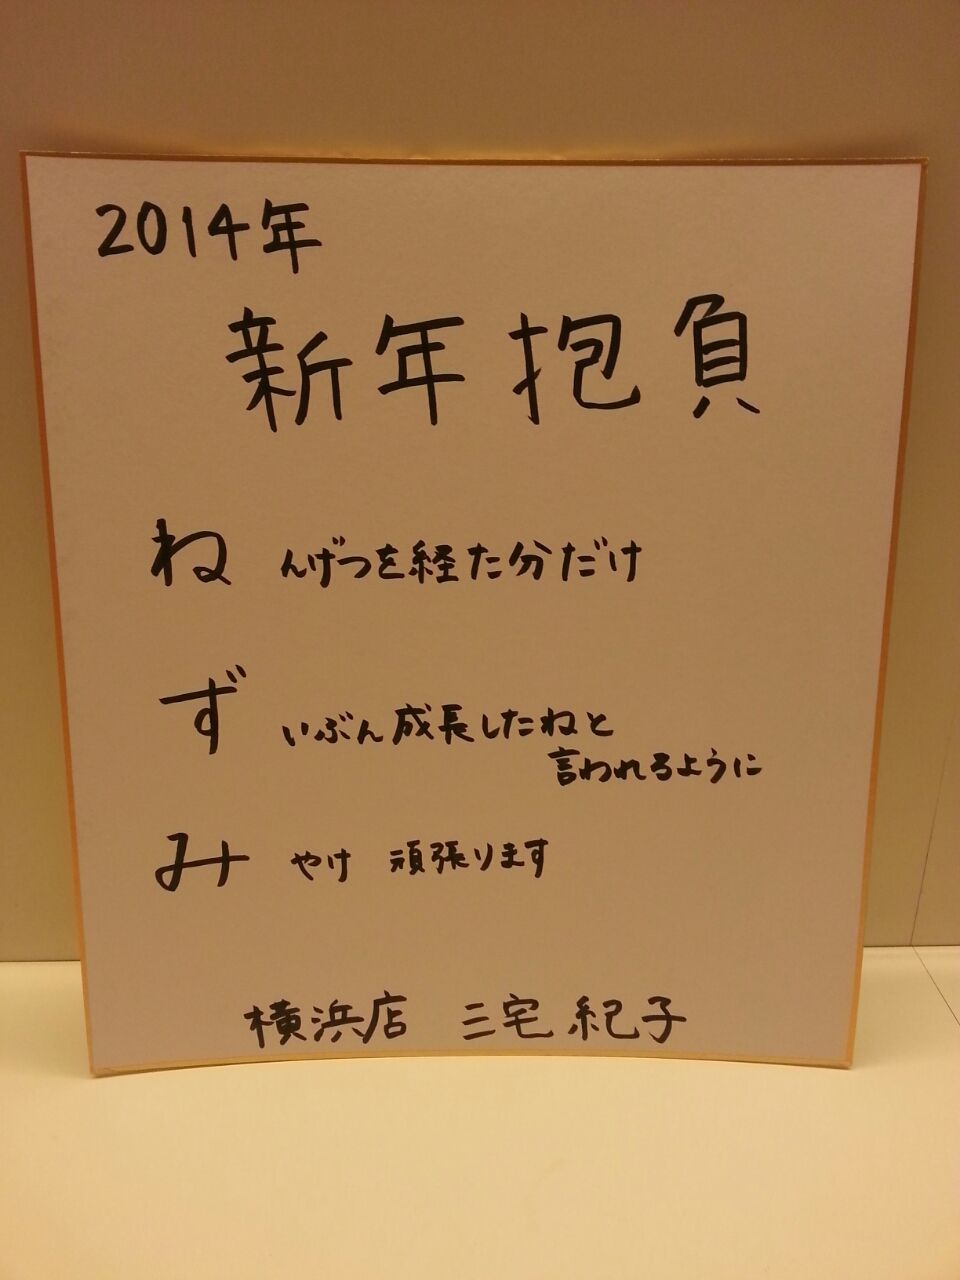 2014年
新年抱負
ねんげつを経た分だけ
ずいぶん成長したねと
言われるように
みやけ 頑張ります
横浜店 三宅紀子